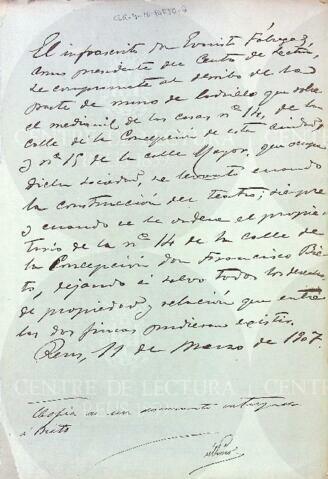 El infrascrito Don Evaristo Fábregas,
como presidente del Centro de Lectura,
se compromete al derribo de la
parte de muro de ladrillo que sobre
el medianil de las casas nº 14, de la
calle de la Concepción de esta ciudad,
y nº 15 de la calle Mayor, que ocupa
dicha sociedad, se levantó cuando
la construcción del teatro; siempre
y cuando se lo ordene el propie-
tario de la nº 14 de la calle de
la Concepción, don Francisco
dejando á salvo todos los derechos
de propiedad y relación que entre
las dos fincas pudieran existir.
Reus, 11 de Marzo de 1907.
Copia de un documento entregado
á
CENTRE DE LECTURA